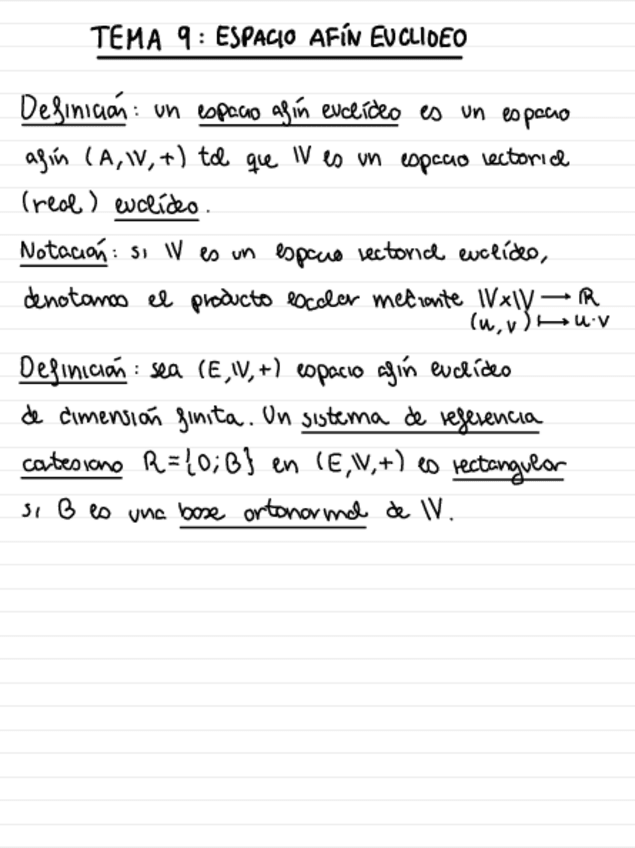 TEMA 9: ESPACIO AFÍN EUCLIDEO
Definición: un espacio afín euclídeo es un espacio
afín (A, 𝕍, +) tal que 𝕍 es un espacio vectorial
(real) euclídeo.
Notación: si 𝕍 es un espacio vectorial euclídeo,
denotamos el producto escalar mediante 𝕍x𝕍 → ℝ
(u, v) ↦ u·v
Definición: sea (E, 𝕍, +) espacio afín euclídeo
de dimensión finita. Un sistema de referencia
cartesiano R = {O; B} en (E, 𝕍, +) es rectangular
si B es una base ortonormal de 𝕍.